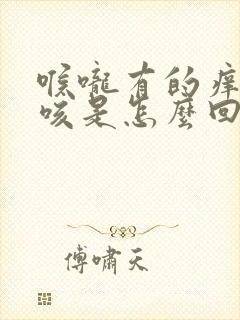 喉嚨有的痒
咳是怎麼回
傅嘯天